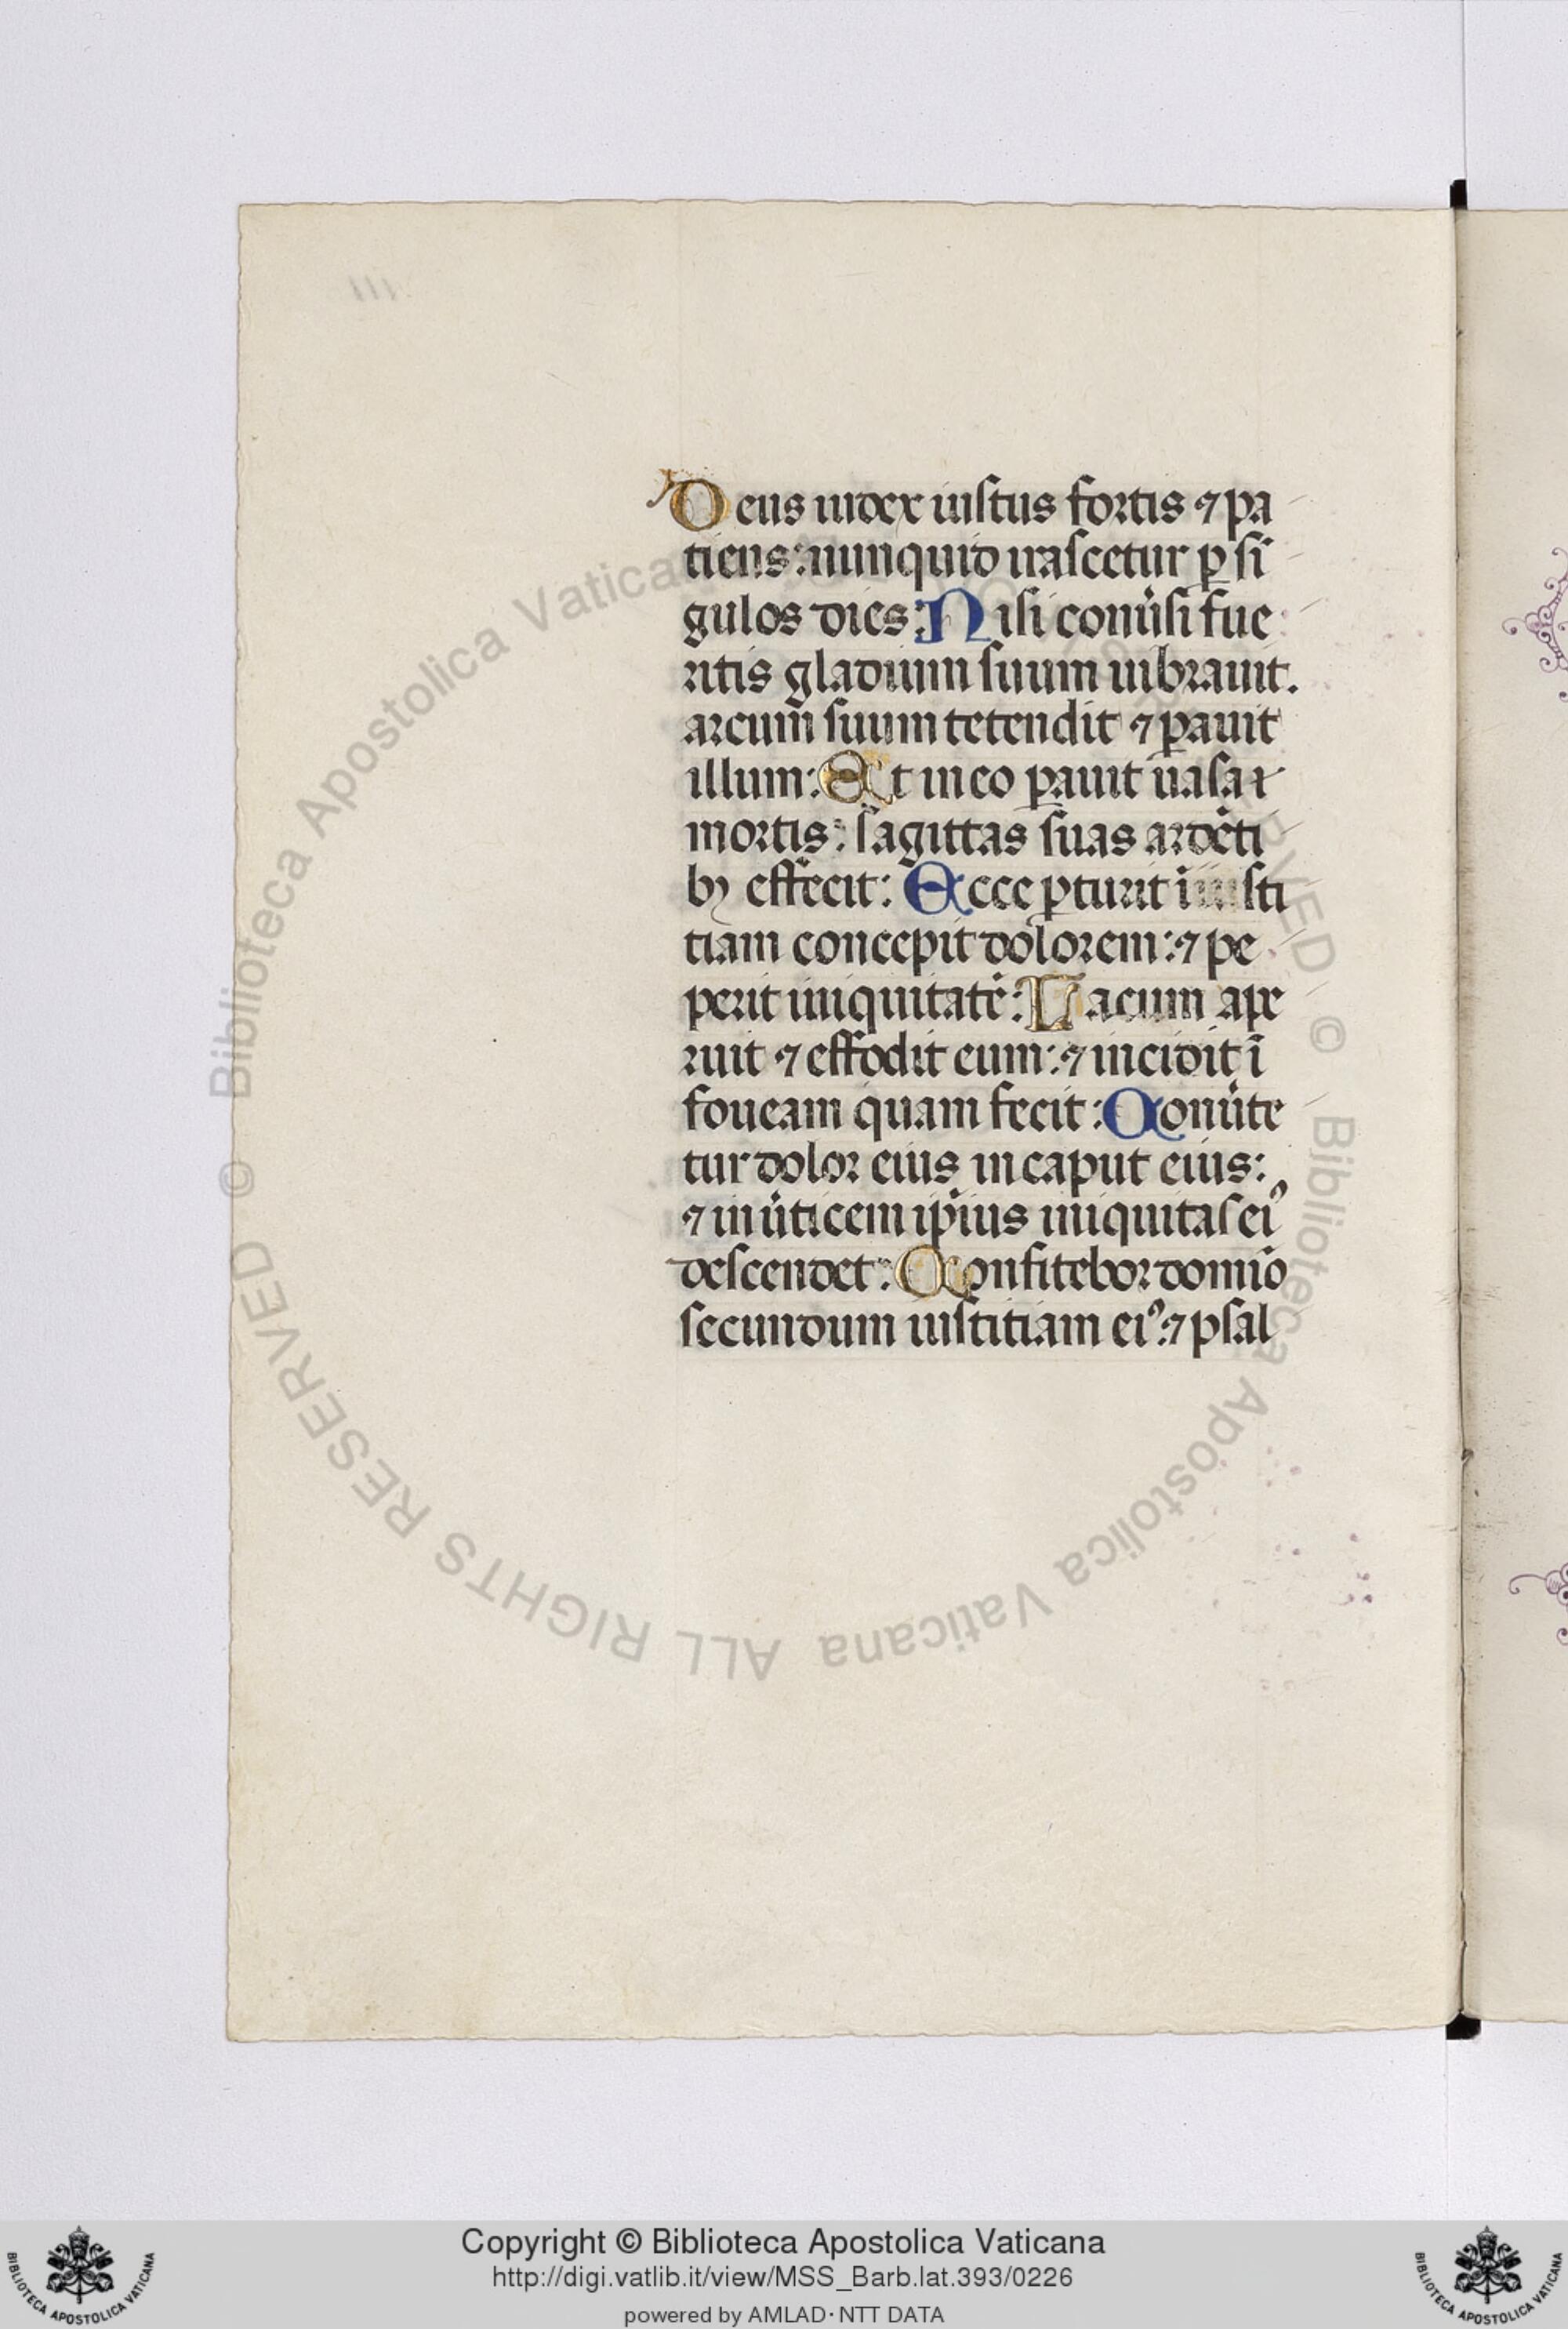 Deus iudex iustus fortis ⁊ pa
tiens: nunquid irascetur ꝑ si
gulos dies: Nisi conu̾si fue
ritis gladium suum uibrauit.
arcum̄ suum tetendit ⁊ ꝑauit
illum: Et in eo ꝑauit uasa
mortis: sagittas suas ardēti
bꝫ effecit: Ecce ꝑturit ī iusti
tiam concepit dolorem: ⁊ pe
perit iniquitatē: Lacum ape
ruit ⁊ effodit eum: ⁊ incidit ī
foueam quam fecit: Conu̾te
tur dolor eius in caput eius:
⁊ in u̾ticem ip̄ius iniquitas eiꝰ
descendet: Confitebor domīo
secundum iustitiam eiꝰ: ⁊ psal
© Biblioteca Apostolica Vaticana ALL RIGHTS RESERVED
Copyright © Biblioteca Apostolica Vaticana
http://digi.vatlib.it/view/MSS_Barb.lat.393/0226
powered by AMLAD·NTT DATA
BIBLIOTECA APOSTOLICA VATICANA
BIBLIOTECA APOSTOLICA VATICANA